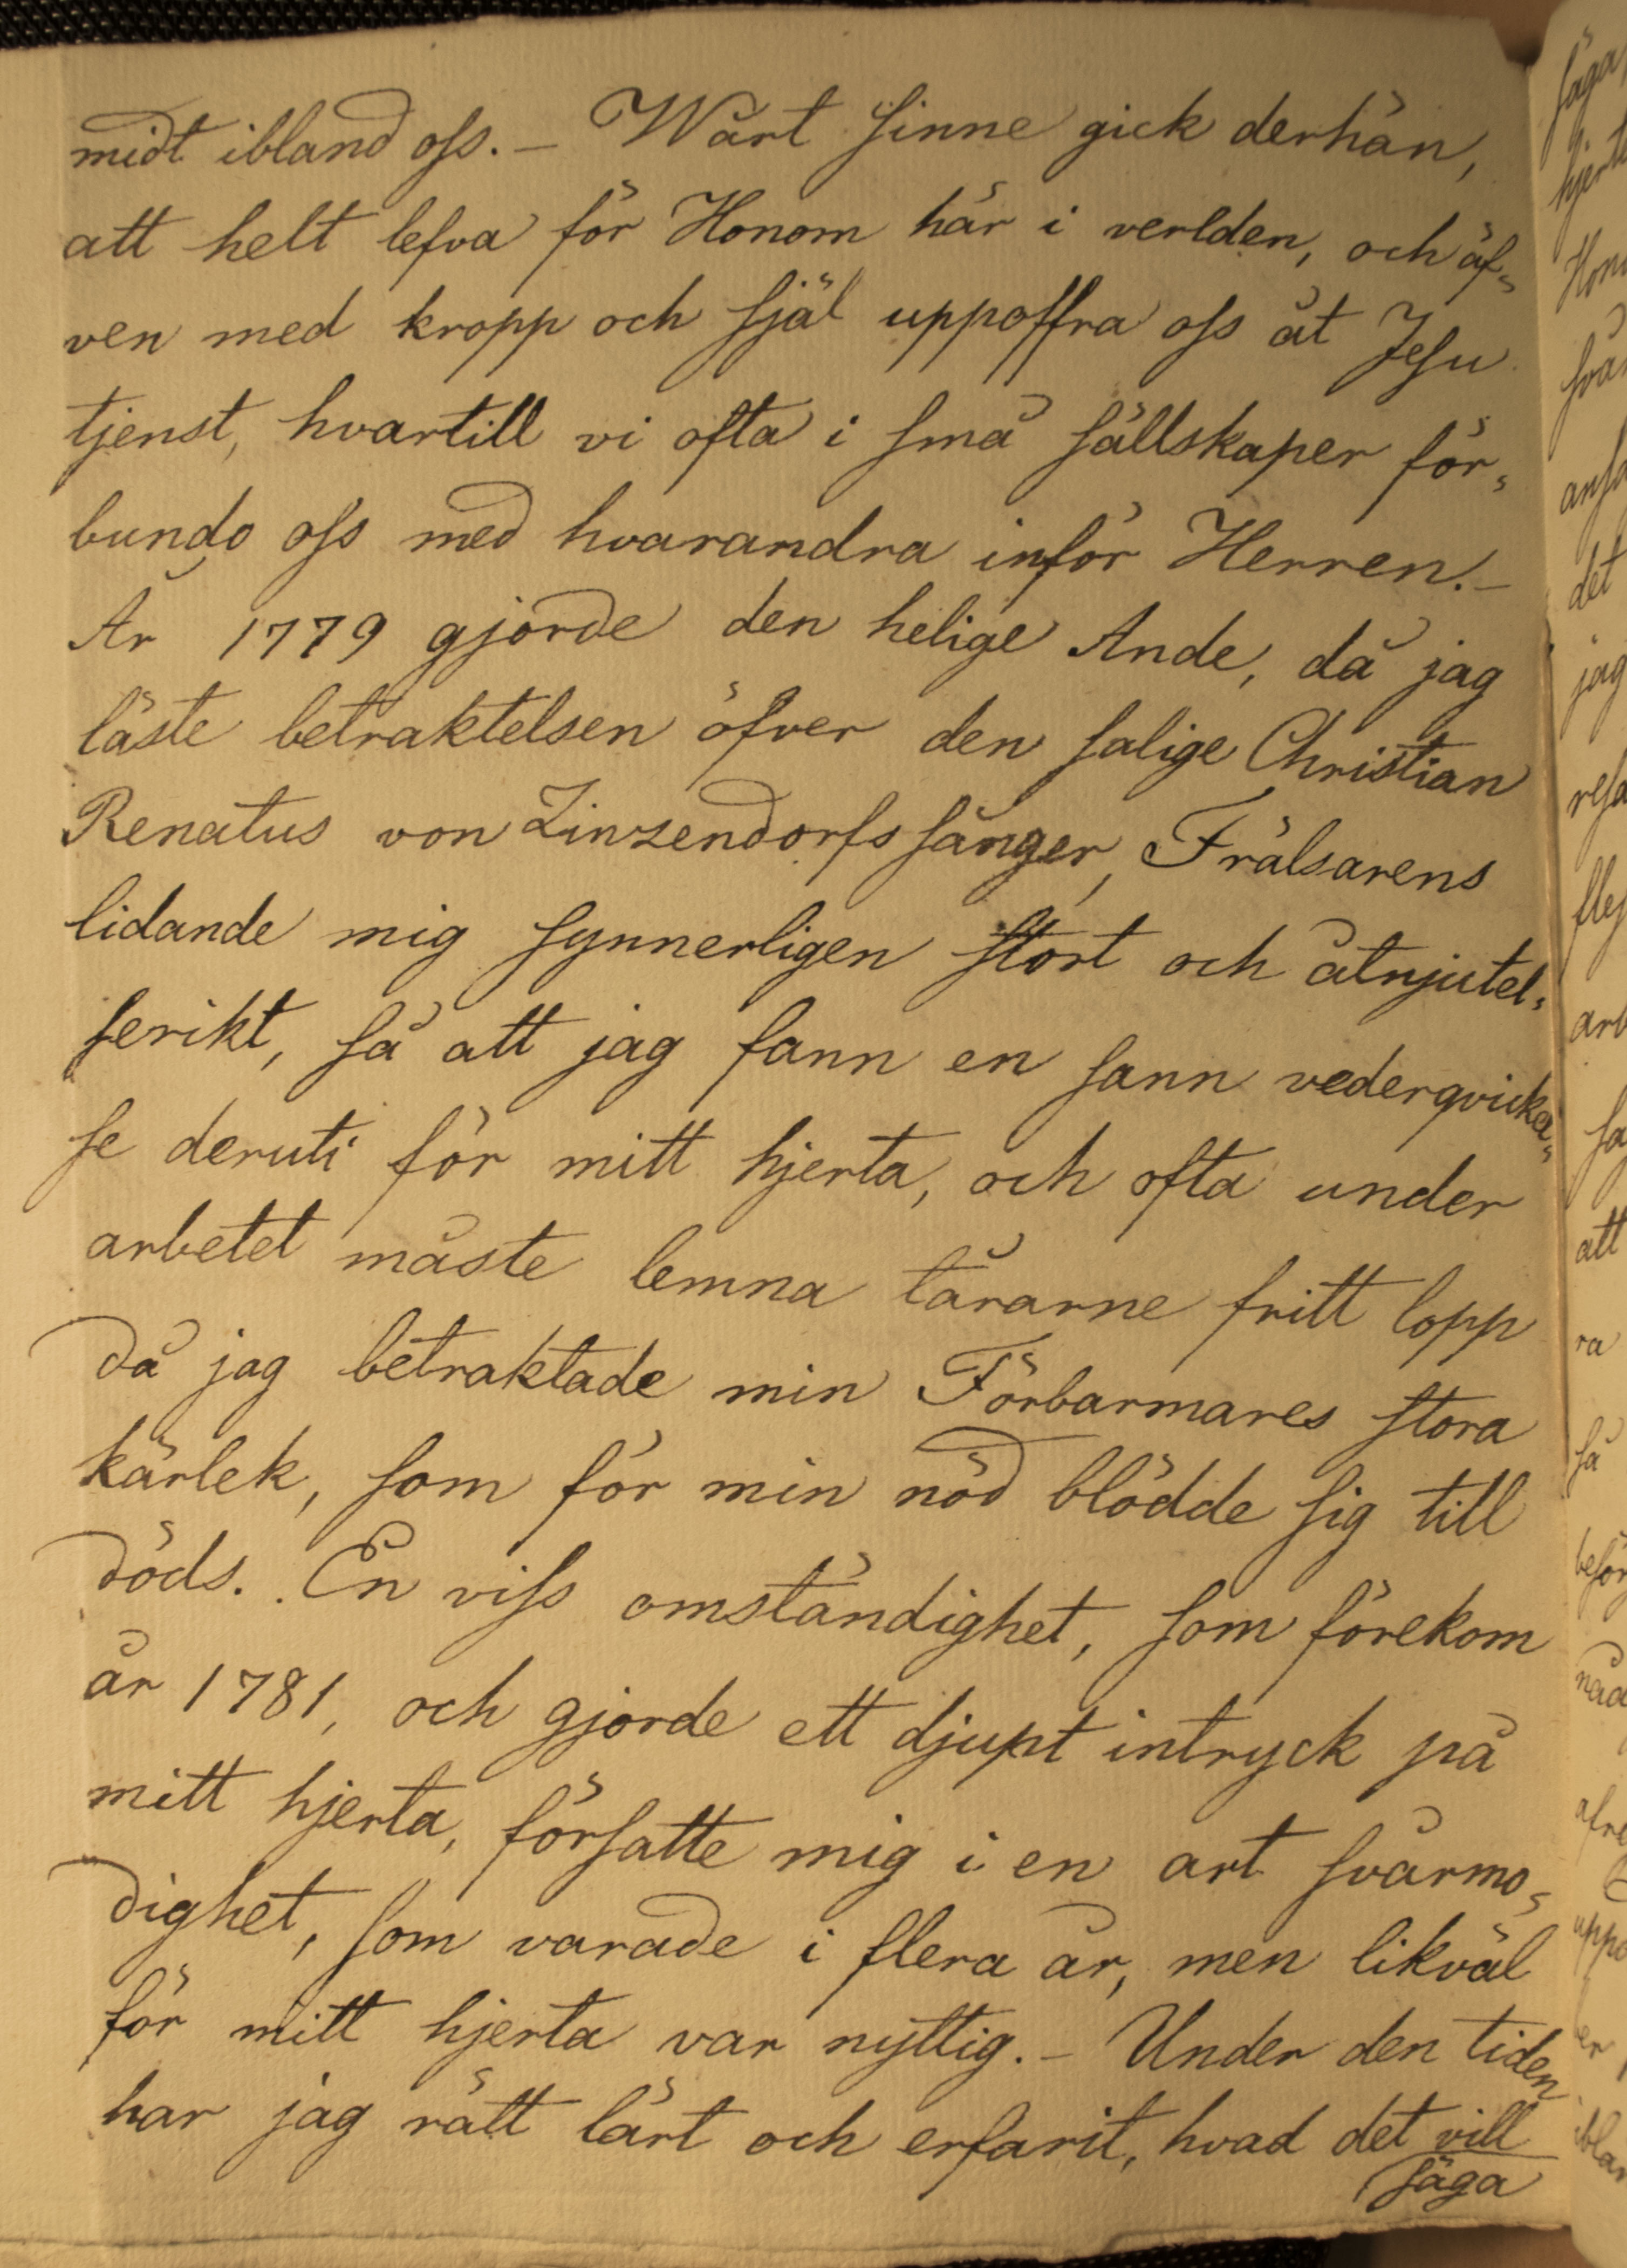 midt ibland oss. – Wårt sinne gick derhän,
att helt lefva för Honom här i verlden, och äf-
ven med kropp och själ uppoffra oss åt Jesu
tjenst, hvartill vi ofta i små sällskaper för-
bundo oss med hvarandra inför Herren. –
År 1779 gjorde den helige Ande, då jag
läste betraktelsen öfver den salige Christian
Renatus von Zinzendorfs sånger, Frälsarens
lidande mig synnerligen stort och åtnjutel-
serikt, så att jag fann en sann vederqvickel-
se deruti för mitt hjerta, och ofta under
arbetet måste lemna tårarne fritt lopp
då jag betraktade min Förbarmares stora
kärlek, som för min nöd blödde sig till
döds. En viss omständighet, som förekom
år 1781, och gjorde ett djupt intryck på
mitt hjerta, försatte mig i en art svårmo-
dighet, som varade i flera år, men likväl
för mitt hjerta var nyttig. – Under den tiden
har jag rätt lärt och erfarit, hvad det vill
säga